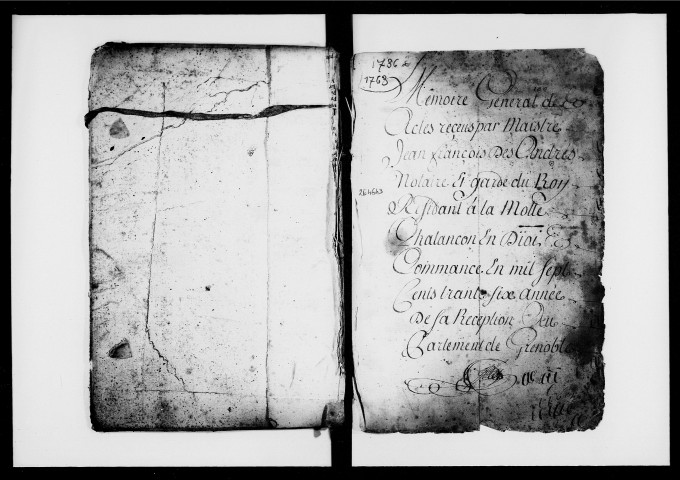 1736 a
1769
Mémoire General de
Actes receus par Maistre
Jean françois Des Andres
Notaire Et garde du Roy
Résidant à la Motte
Chalancon En Diois Et
Commance En mil sept
Cents trante six année
De sa Reception Au
Parlement de Grenoble